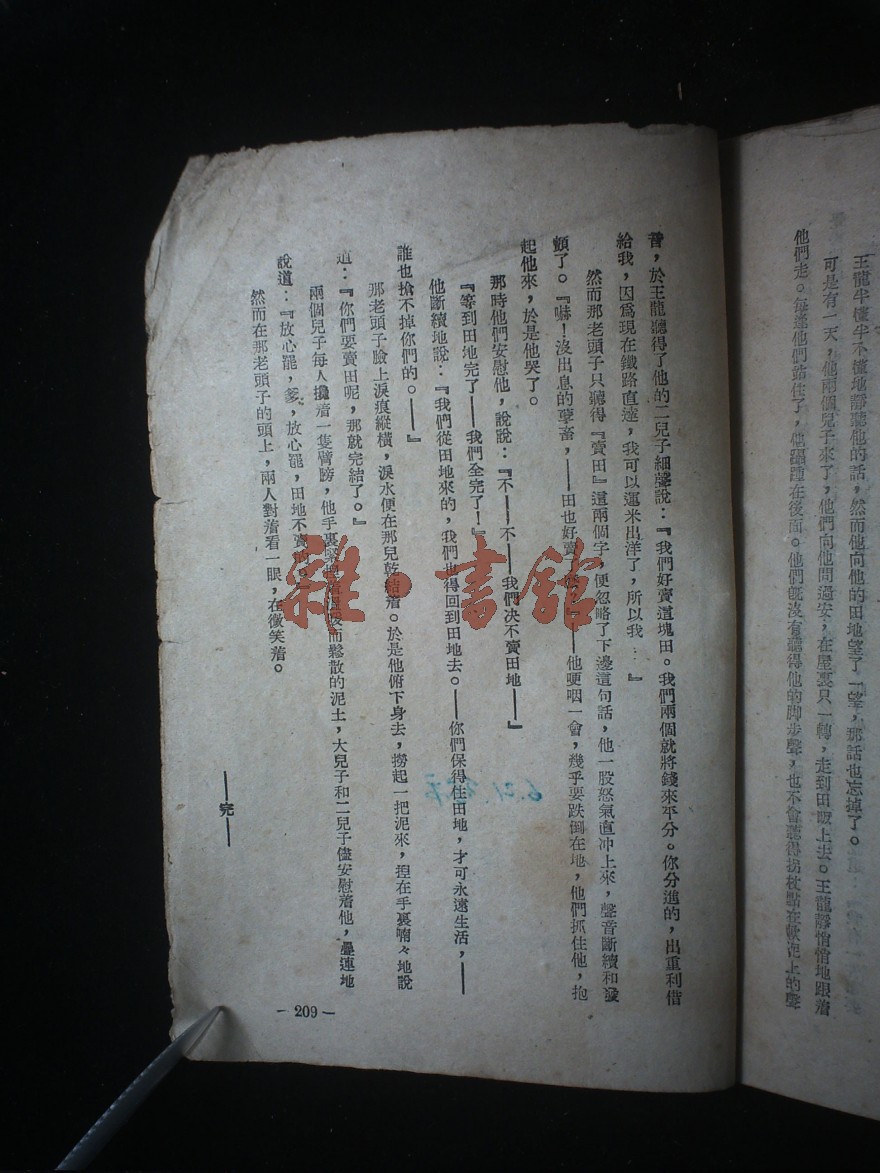 王龍半懂半不懂地靜聽他的話，然而他向他的田地望了一望，那話也忘掉了。
可是有一天，他兩個兒子來了，他們向他問過安，在屋裏只一轉，走到田畈上去。王龍靜悄悄地跟着
他們走。每逢他們站住了，他躡踵在後面。他們旣沒有聽得他的脚步聲，也不會聽得拐杖點在軟泥上的聲
音，於王龍聽得了他的二兒子細聲說：『我們好賣這塊田。我們兩個就將錢來平分。你分進的，出重利借
給我，因爲現在鐵路直達，我可以運米出洋了，所以我…』
然而那老頭子只聽得『賣田』這兩個字，便忽略了下邊這句話，他一股怒氣直沖上來，聲音斷續和發
顫了。『嚇！沒出息的孽畜，——田也好賣
——他哽咽一會，幾乎要跌倒在地，他們抓住他，抱
起他來，於是他哭了。
那時他們安慰他，說說：『不——不——我們决不賣田地——』
『等到田地完了——我們全完了！』
他斷續地說：『我們從田地來的，我們也得回到田地去。——你們保得住田地，才可永遠生活，——
誰也搶不掉你們的。——』
那老頭子臉上淚痕縱橫，淚水便在那兒乾結着。於是他俯下身去，撈起一把泥來，揑在手裏喃々地說
道：『你們要賣田呢，那就完結了。』
兩個兒子每人攙着一隻臂膀，他手裏緊揑着溫暖而鬆散的泥土，大兒子和二兒子儘安慰着他，疊連地
說道：『放心罷，爹，放心罷，田地不賣的。』
然而在那老頭子的頭上，兩人對着看一眼，在微笑着。
——完——
— 209 —
雜·書館
6.21.